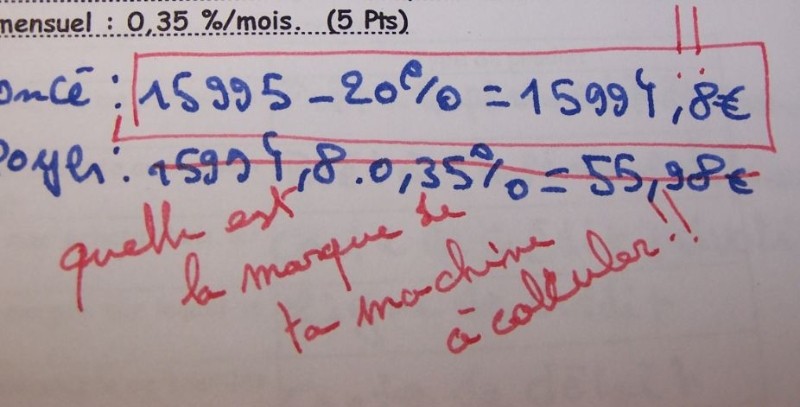 mensuel : 0,35 %/mois. (5 Pts)
oncé : 15995 - 20% = 15994,8€ !!
Payer : 15994,8.0,35% = 55,98€
quelle est
la marque de
ta machine
à calculer !!